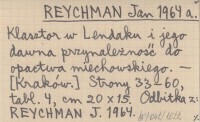 REYCHMAN Jan 1964 a.
Klasztor w Lendaku i jego
dawna przynależność do
opactwa miechowskiego. —
[Kraków.] Strony 33–60,
tabl. 4, cm 20 × 15. Odbitka z:
REYCHMAN J. 1964.